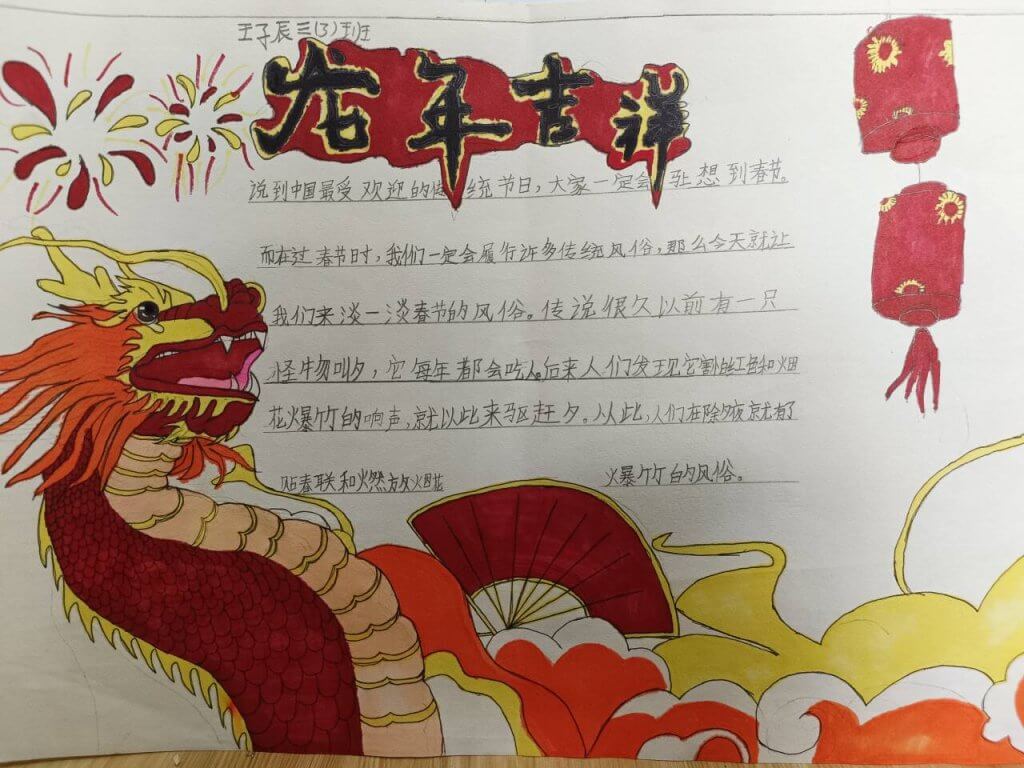 王子辰三(3)班
龙年吉祥
说到中国最受欢迎的传统节日,大家一定会 想到春节。
而在过春节时,我们一定会履行许多传统风俗,那么今天就让
我们来淡一淡春节的风俗。传说很久以前有一只
怪物叫夕,它每年都会吃人。后来人们发现它害怕红色和烟
花火爆竹的响声,就以此来驱赶夕。从此,人们在除夕夜就有了
贴春联和燃放烟花 火爆竹的风俗。